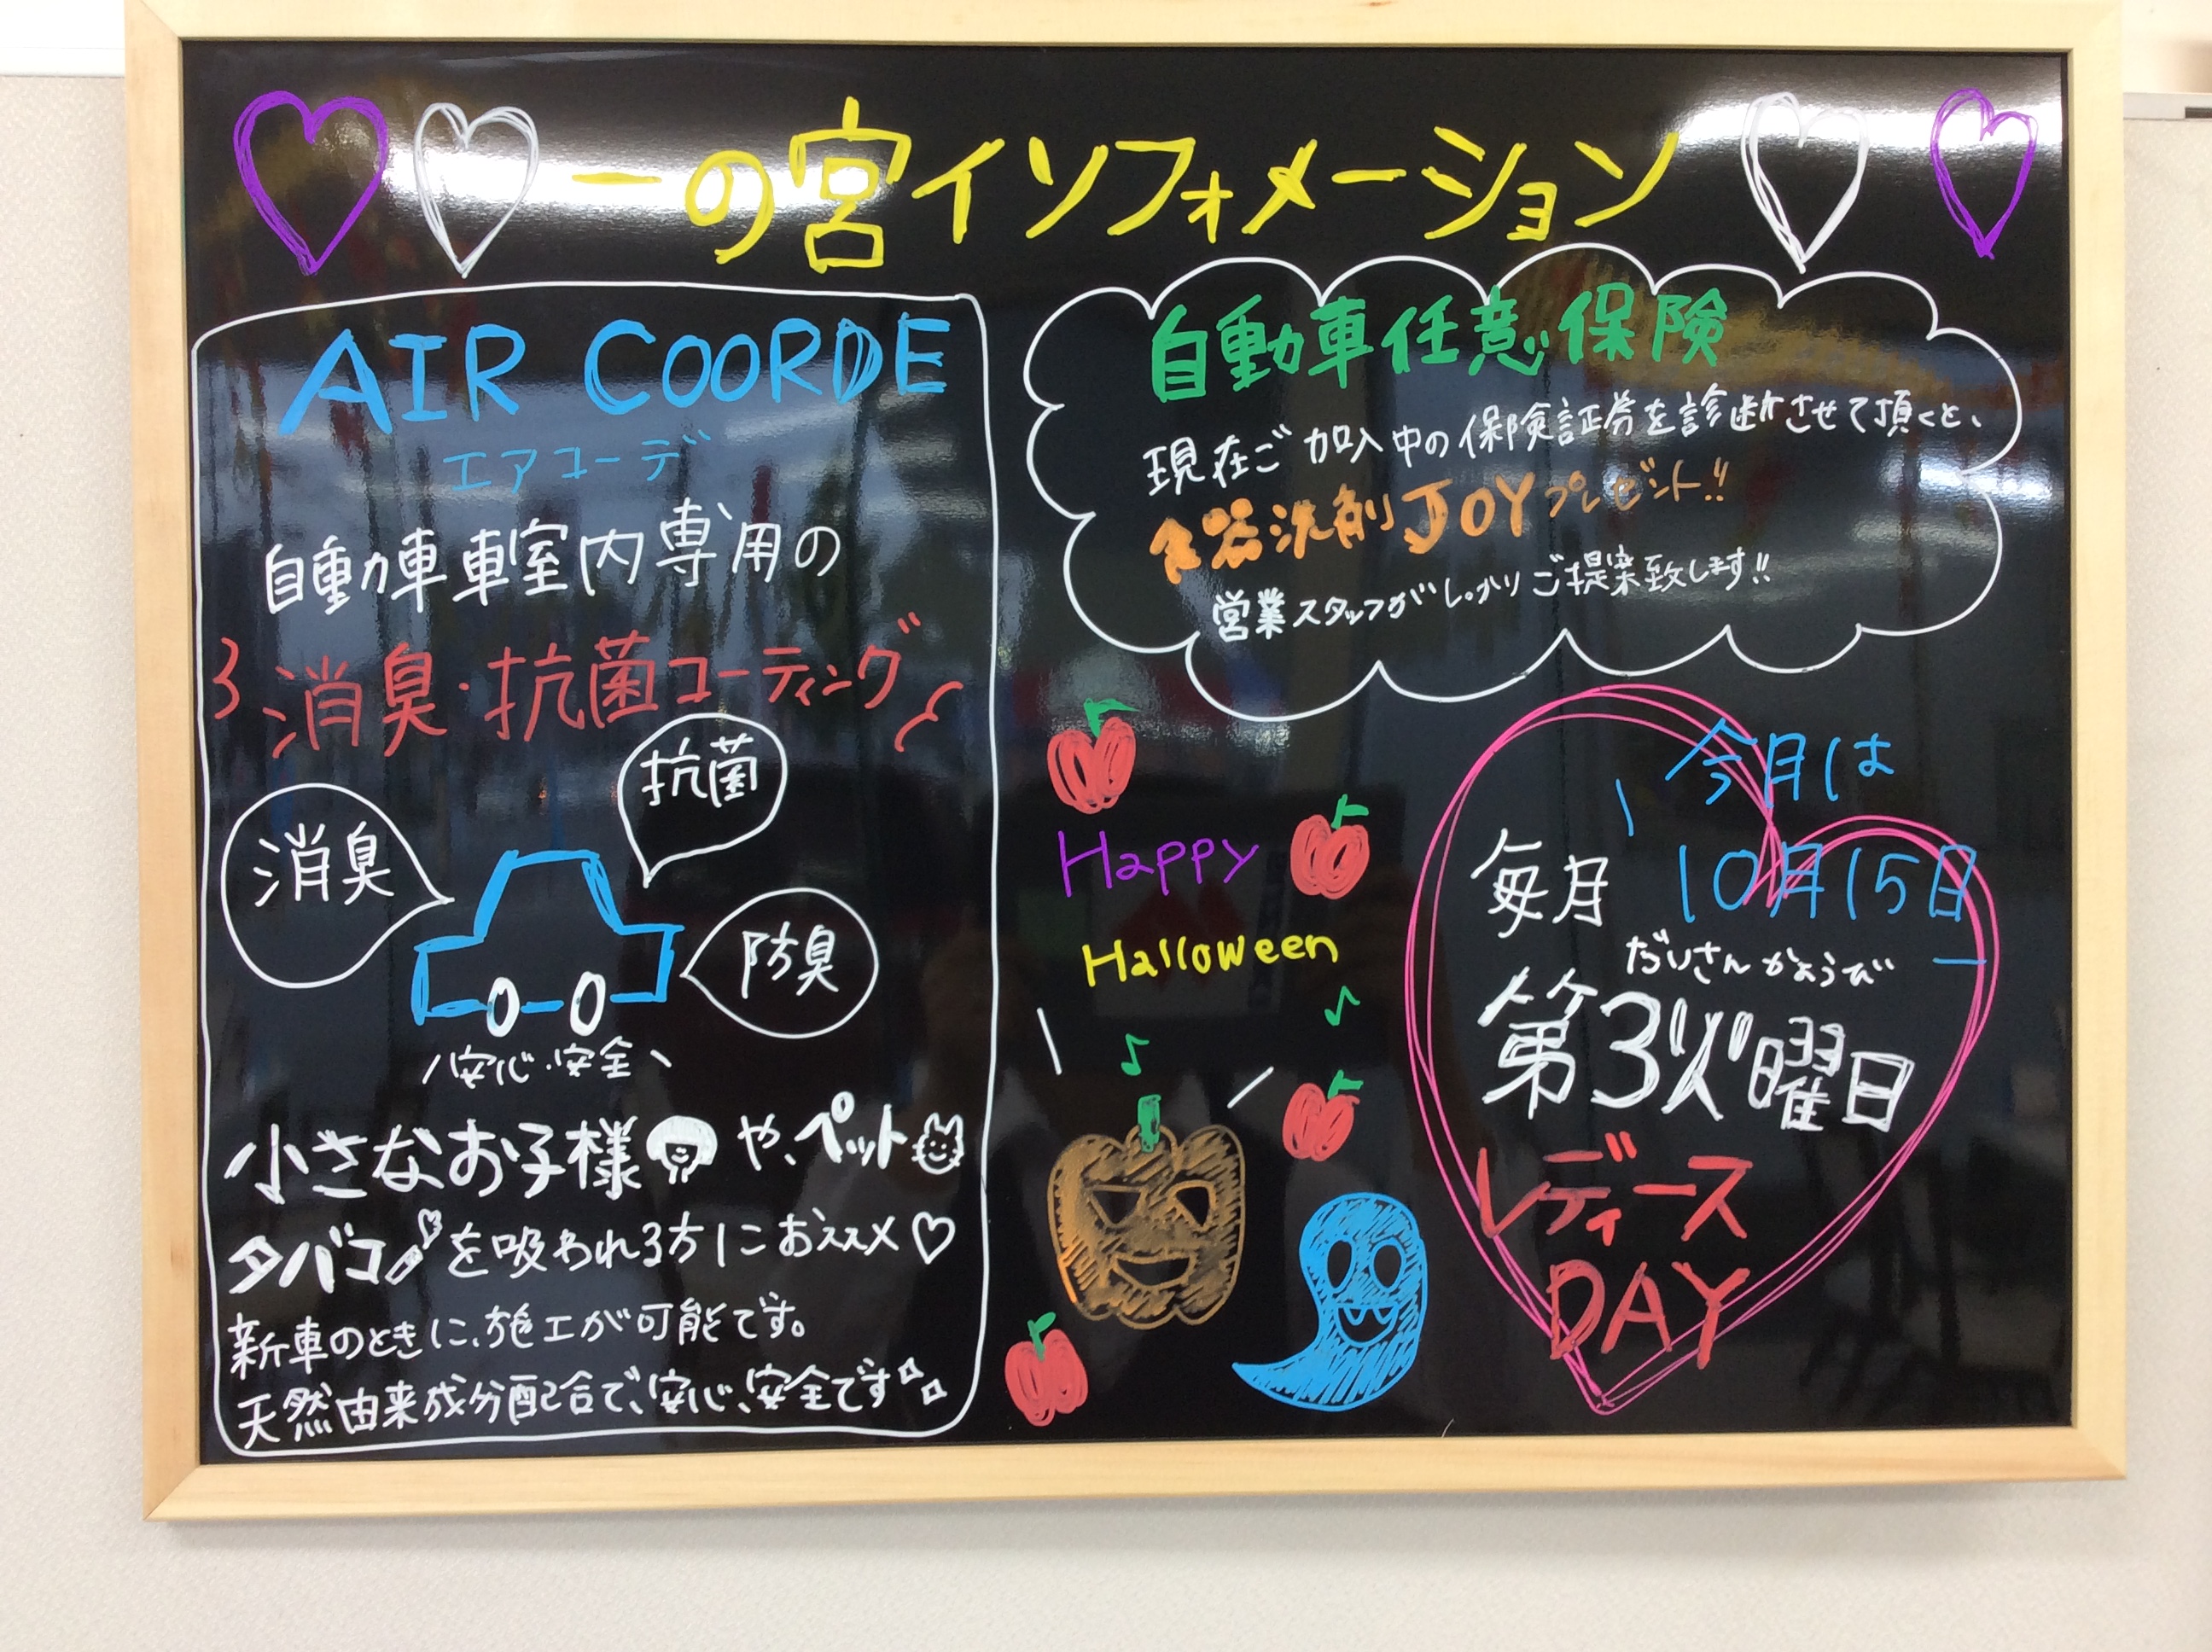 一の宮インフォメーション
AIR COORDE
エアコーデ
自動車車室内専用の
消臭・抗菌コーティング
抗菌
消臭
防臭
安心・安全
小さなお子様や、ペット
タバコを吸われる方におススメ♡
新車のときに、施工が可能です。
天然由来成分配合で、安心、安全です
自動車任意保険
現在ご加入中の保険証券を診断させて頂くと、
食器洗剤JOYプレゼント!!
営業スタッフがしっかりご提案致します!!
Happy
Halloween
今月は
10月15日
毎月
だいさんかようび
第3火曜日
レディース
DAY